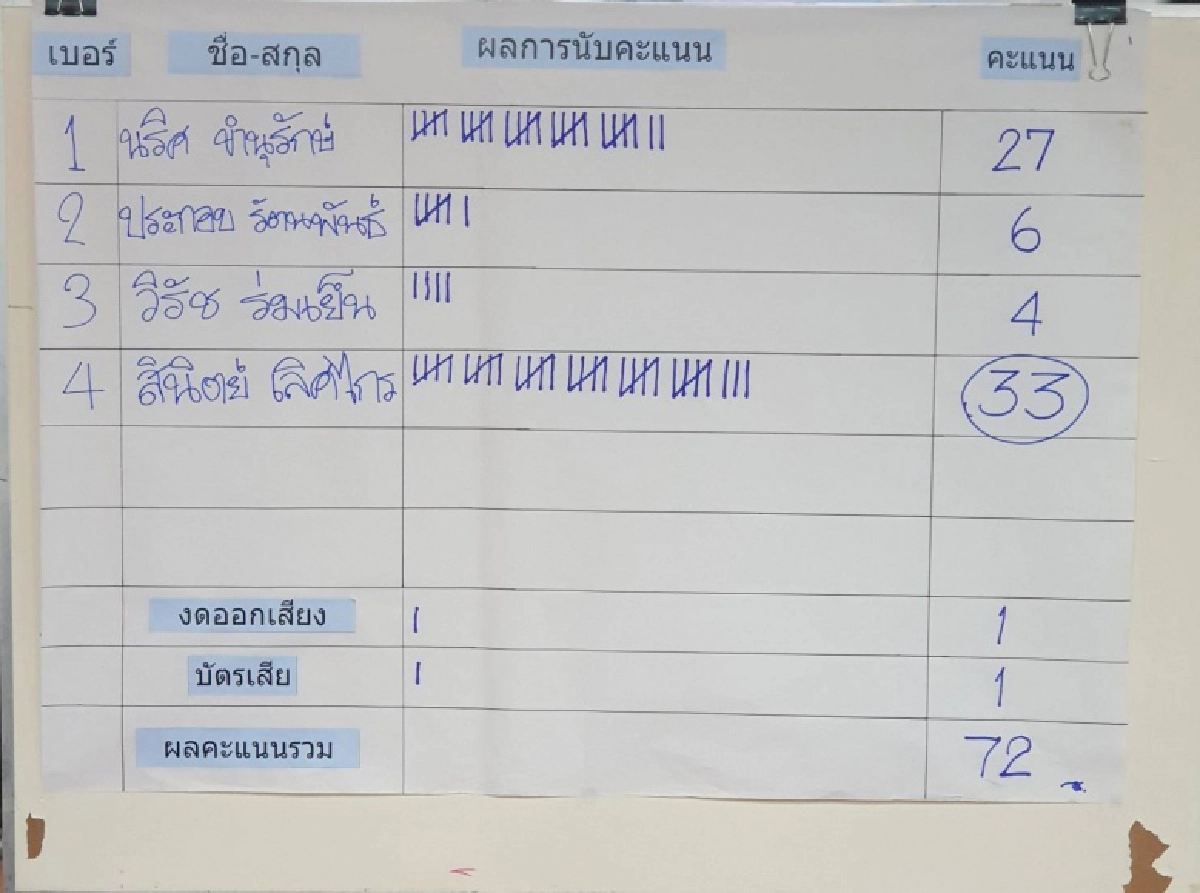 เบอร์ ชื่อ-สกุล ผลการนับคะแนน คะแนน
1 นริศ ขำนุรักษ์ 27
2 ประกอบ รัตนพันธ์ 6
3 วิรัช ร่มเย็น 4
4 สินิตย์ เลิศไกร 33
งดออกเสียง 1
บัตรเสีย 1
ผลคะแนนรวม 72